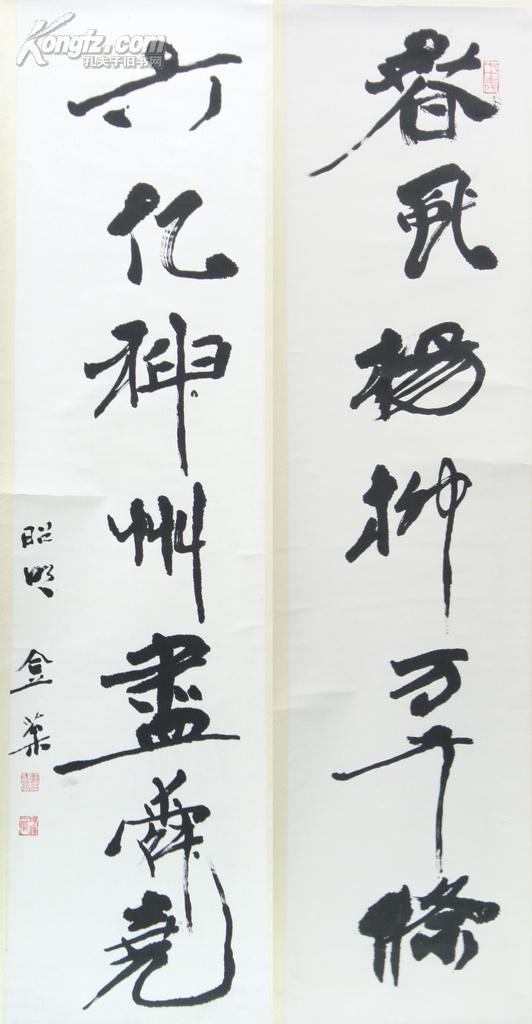 Kongfz.com
孔夫子旧书网
春風楊柳万千條
六亿神州盡舜堯
昭明